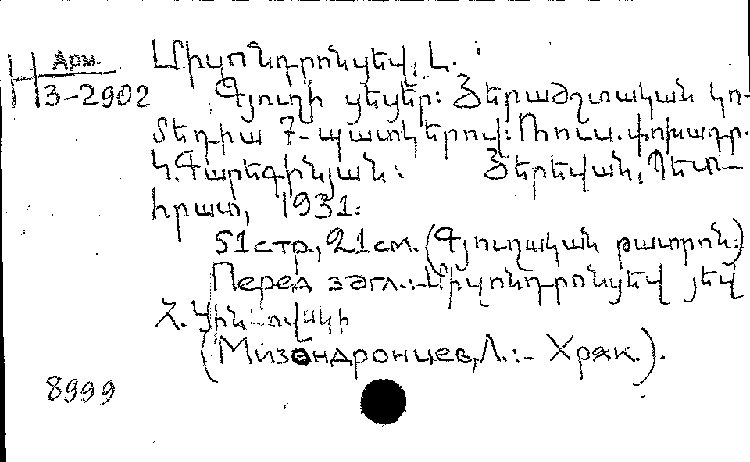 Арм.
Н 3-2902
Միզոնդրոնցեվ, Լ.
Գյուղի ցեցեր: Յերաժշտական կո-
մեդիա 7-պատկերով: Ռուս. փոխադր.
Կ. Գարեգինյան: Յերեվան, Պետ-
հրատ, 1931:
51 стр., 21 см. (Գյուղական թատրոն:)
Перед загл.:-Միզոնդրոնցեվ յեվ
(Мизондронцев, Л.:- Хряк.).
8999